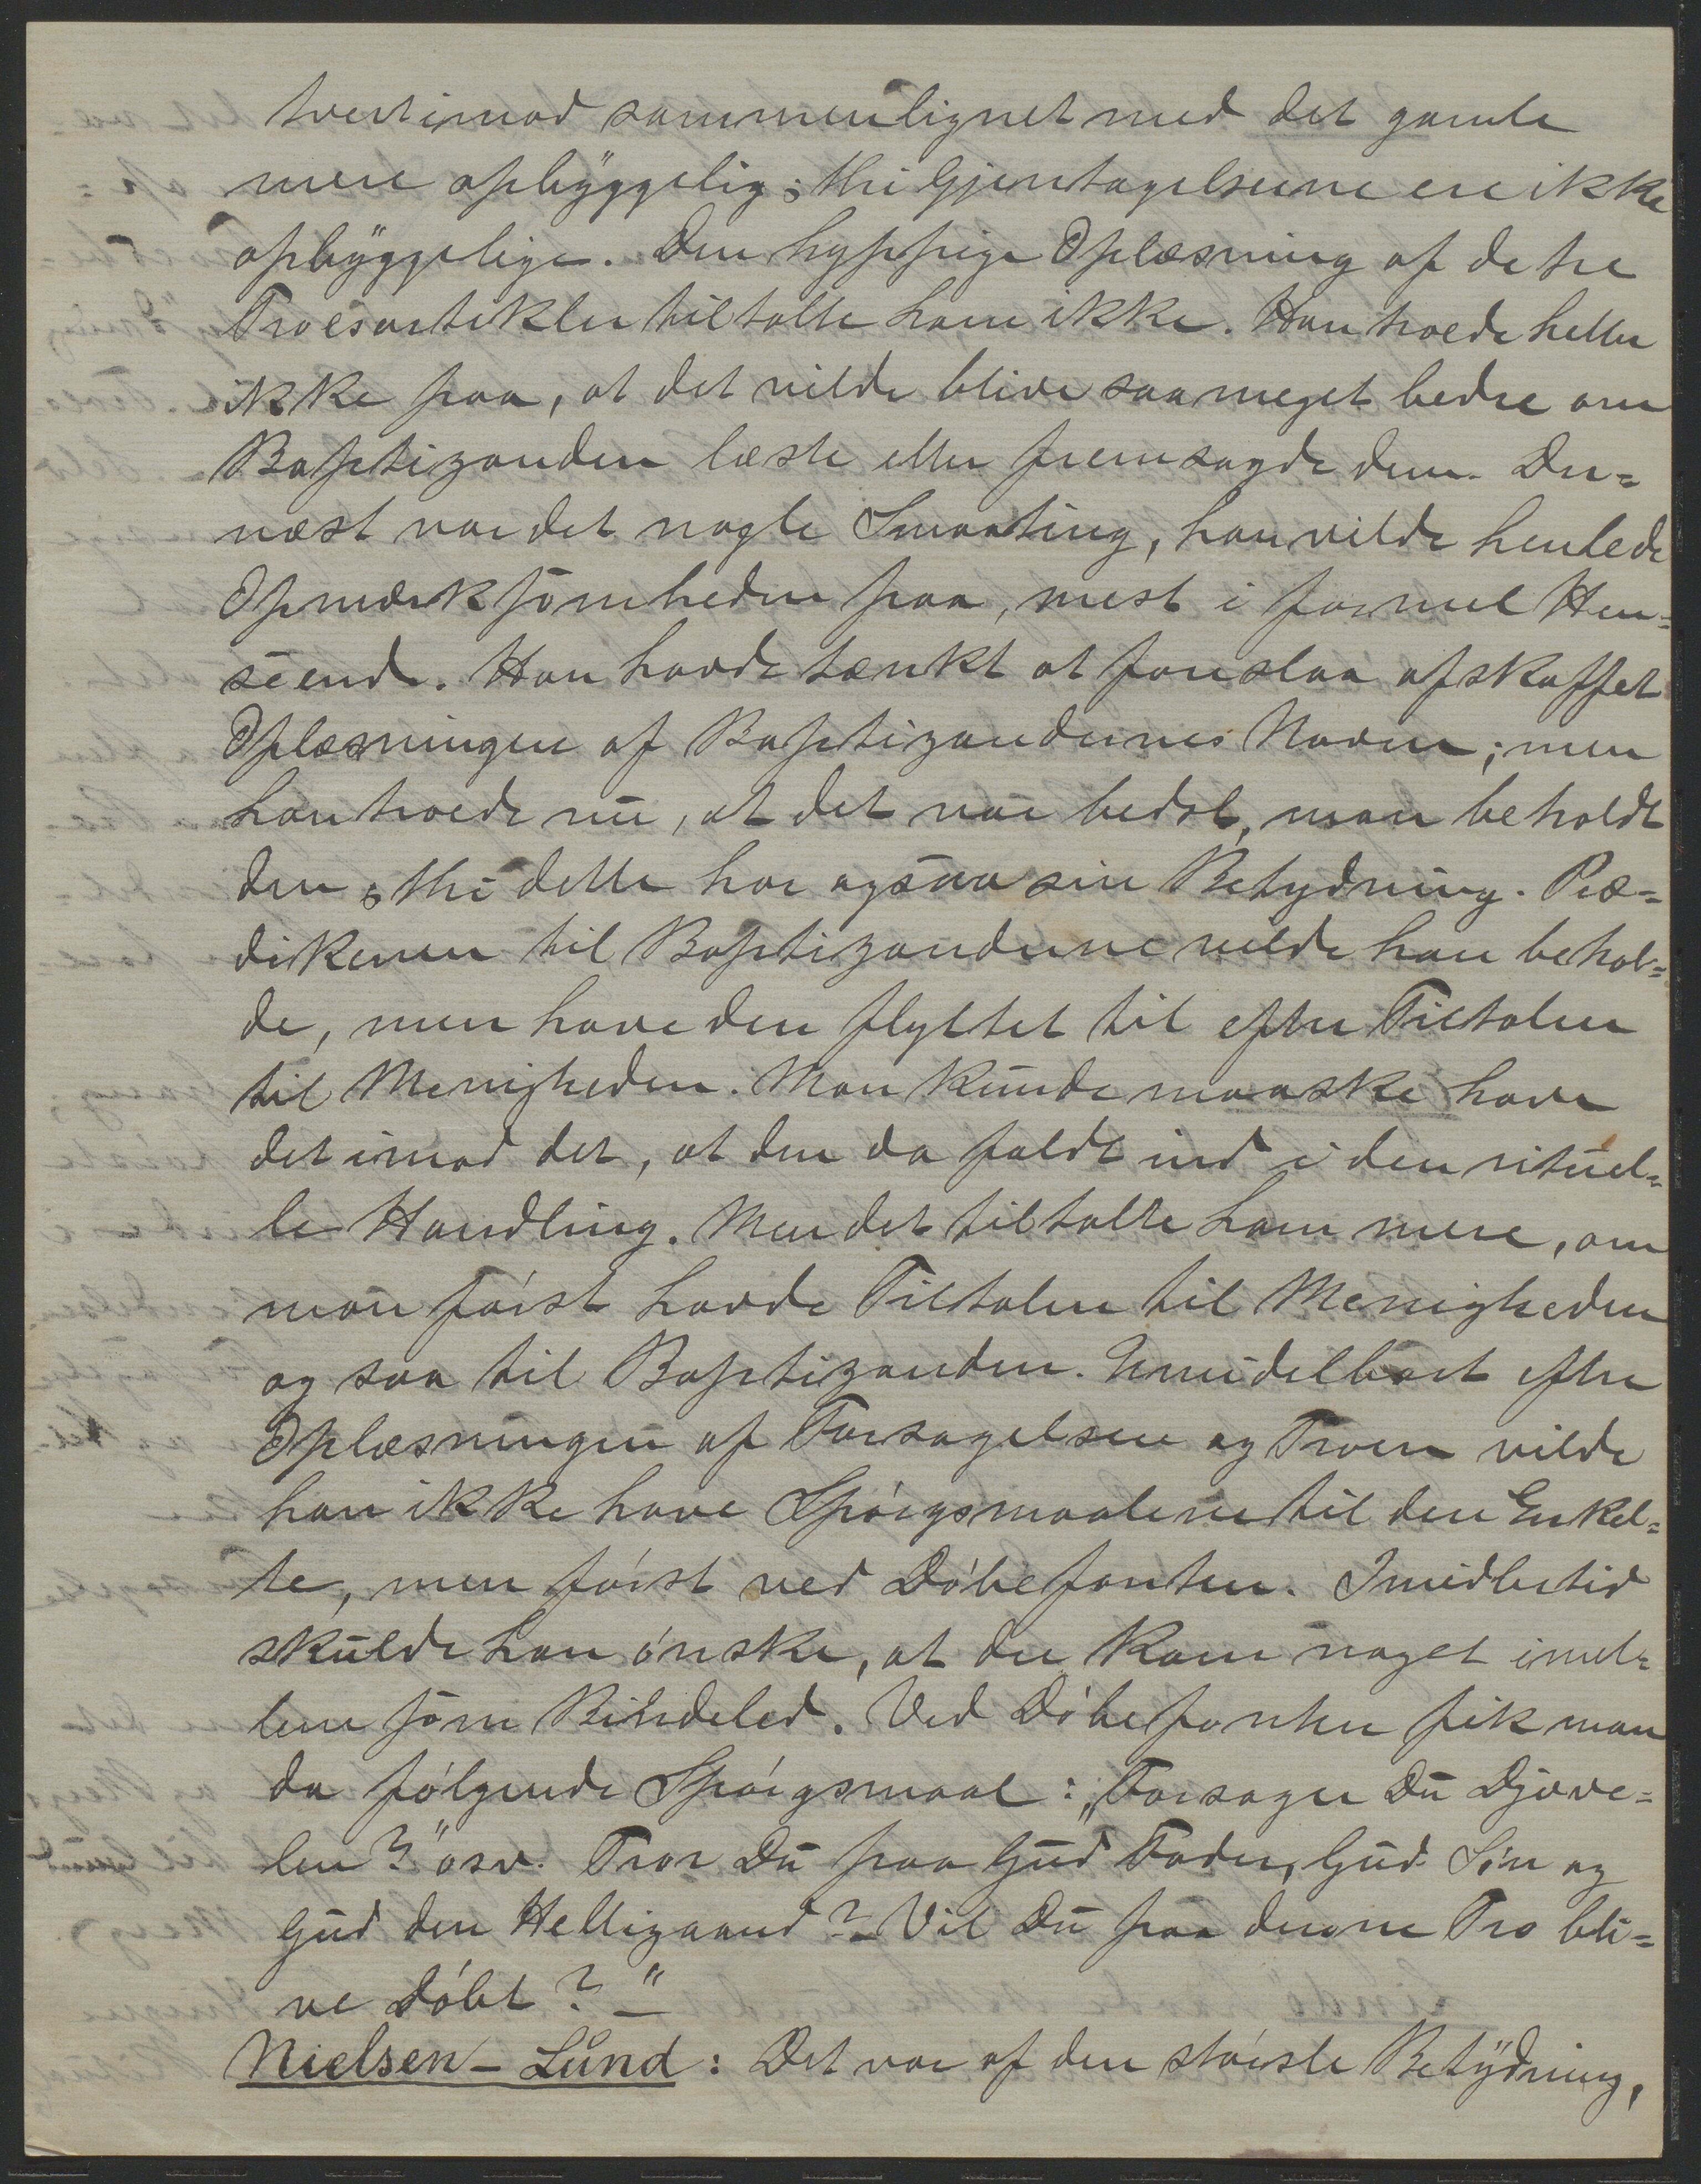 tvertimod sammenlignet med det gamle
mere opbyggelig; thi Gjentagelserne ere ikke
opbyggelige. Den hyppige Oplæsning af de tre
Troesartikler tiltalte ham ikke. Han troede heller
ikke paa, at det vilde blive saa meget bedre om
Baptizanden læste eller fremsagde dem. Der=
næst var det nogle Smaating, han vilde henlede
Opmærksomheden paa, mest i formel Hen=
seende. Han havde tænkt at foreslaa afskaffet
Oplæsningen af Baptizandernes Navne; men
han troede nu, at det var bedst, man beholdt
den; thi dette har ogsaa sin Betydning. Præ=
dikenen til Baptizanderne vilde han behol=
de, men have den flyttet til efter Tiltalen
til Menigheden. Man kunde maaske have
det imod det, at den da faldt ind i den rituel=
le Handling. Men det tiltalte ham mere, om
man først havde Tiltalen til Menigheden
og saa til Baptizanden. Umidelbart efter
Oplæsningen af Forsagelsen og Troen vilde
han ikke have Spørgsmaalene til den Enkel=
te, men først ved Døbefonten. Imidlertid
skulde han ønske, at der kom noget imel=
lem som Bindeled. Ved Døbefonten fik man
da følgende Spørgsmaal: „Forsager Du Djæve=
len?" osv. Tror Du paa Gud Fader, Gud Søn og
Gud den Helligaand? Vil Du paa denne Tro bli=
ve døbt? _"
Nielsen-Lund: Det var af den største Betydning,